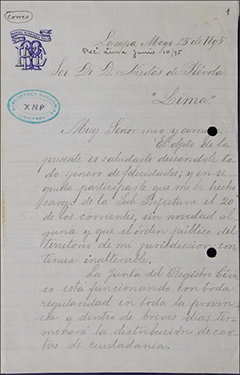 correo
1
Lampa, Mayo 25 de 1895
Rec. Lima Junio 10/95
Sor Dr. D. Nicolás de Piérola
"Lima"
XNP
Muy Señor mío y
El objeto de la
presente es saludarlo deseándole to-
do género de felicidades, y en se-
guida participarle que me he hecho
cargo de la Sub Prefectura el 20
de los corrientes, sin novedad al-
guna y que el orden público del
territorio de mi jurisdicción con-
tinua inalterable.
La Junta del Registro Cívi-
co está funcionando con toda
regularidad en toda la provin-
cia y dentro de breves días ter-
minará la distribución de car-
tas de ciudadanía.